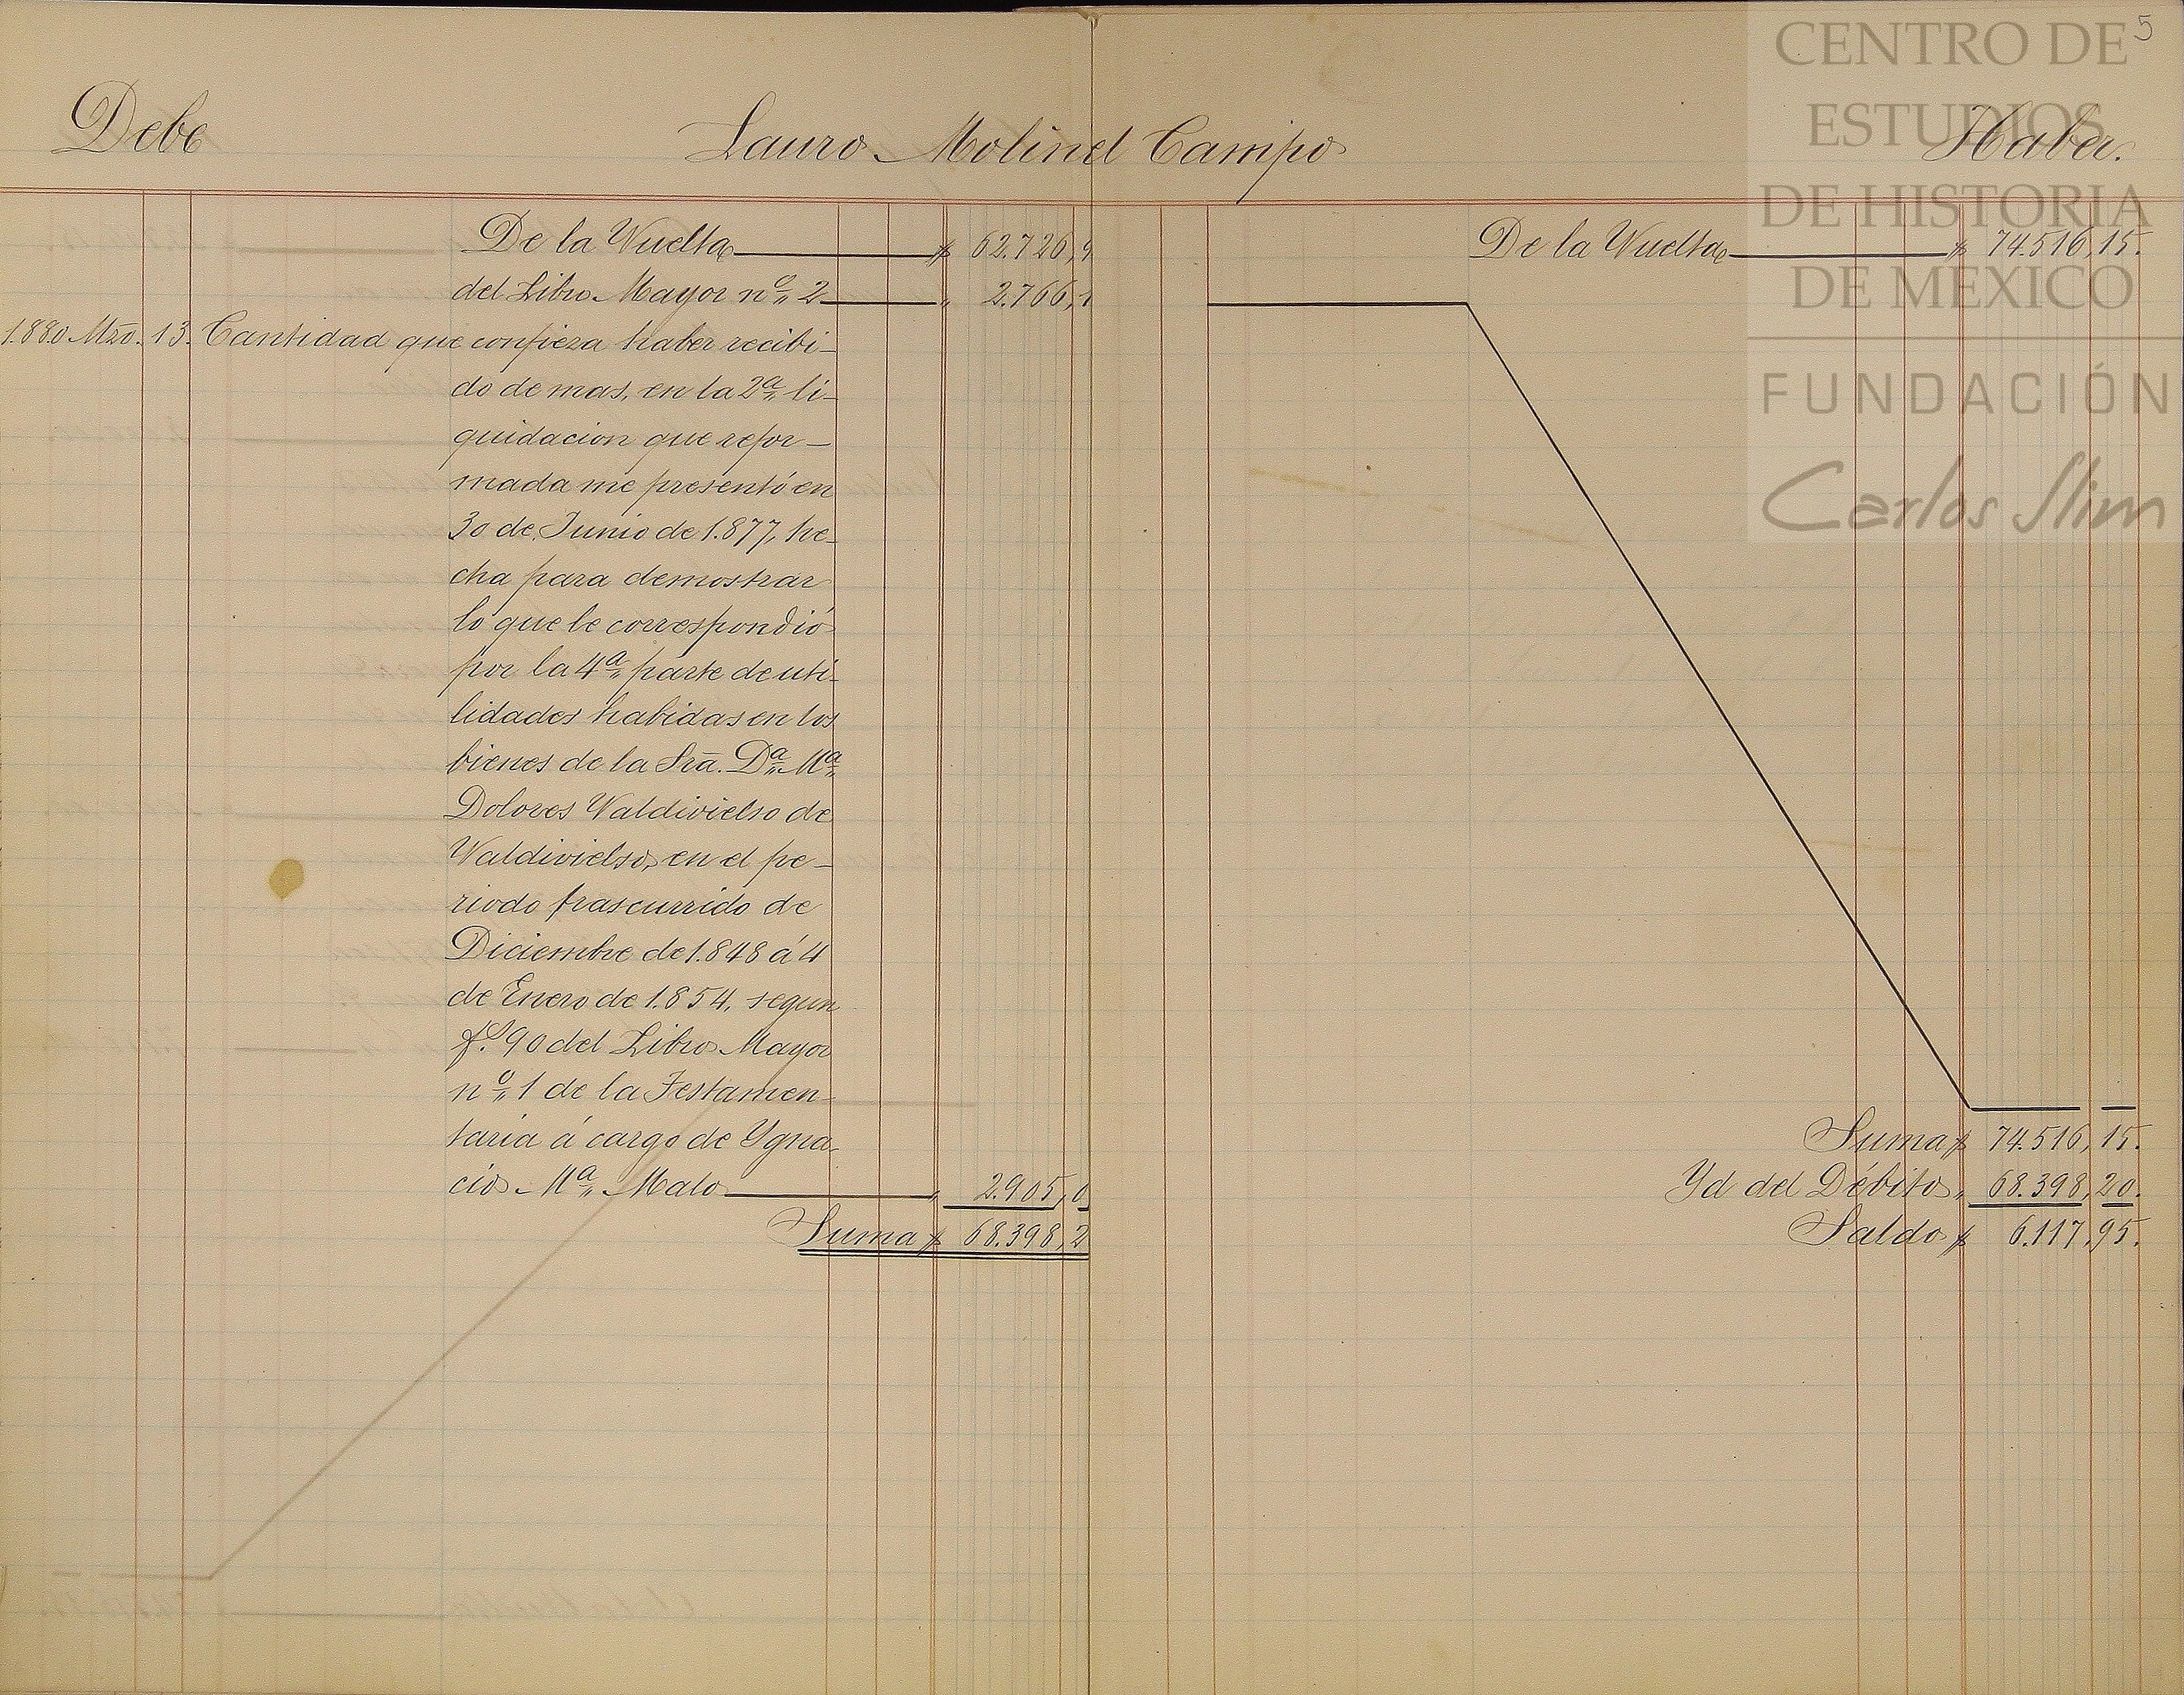 5
Debe
Lauro Molinel Campo
Haber.
De la Vuelta $ 62.726,9
del Libro Mayor nº 2 " 2.766,1
1.880 Mzo. 13. Cantidad que confieza haber recibi-
do de mas, en la 2ª li-
quidacion que refor-
mada me presentó en
30 de Junio de 1.877, he-
cha para demostrar
lo que le correspondió
por la 4ª parte de uti-
lidades habidas en los
bienes de la Srā. Dª Mª
Dolores Valdivielso de
Valdivielso, en el pe-
riodo trascurrido de
Diciembre de 1.848 á 4
de Enero de 1.854, segun
fº 90 del Libro Mayor
nº 1 de la Testamen-
taria á cargo de Ygna-
cio Mª Malo " 2.905,0
Suma $ 68.398,2
De la Vuelta $ 74.516,15.
Suma $ 74.516,15.
Yd del Débito " 68.398,20.
Saldo $ 6.117,95.
CENTRO DE
ESTUDIOS
DE HISTORIA
DE MÉXICO
FUNDACIÓN
Carlos Slim